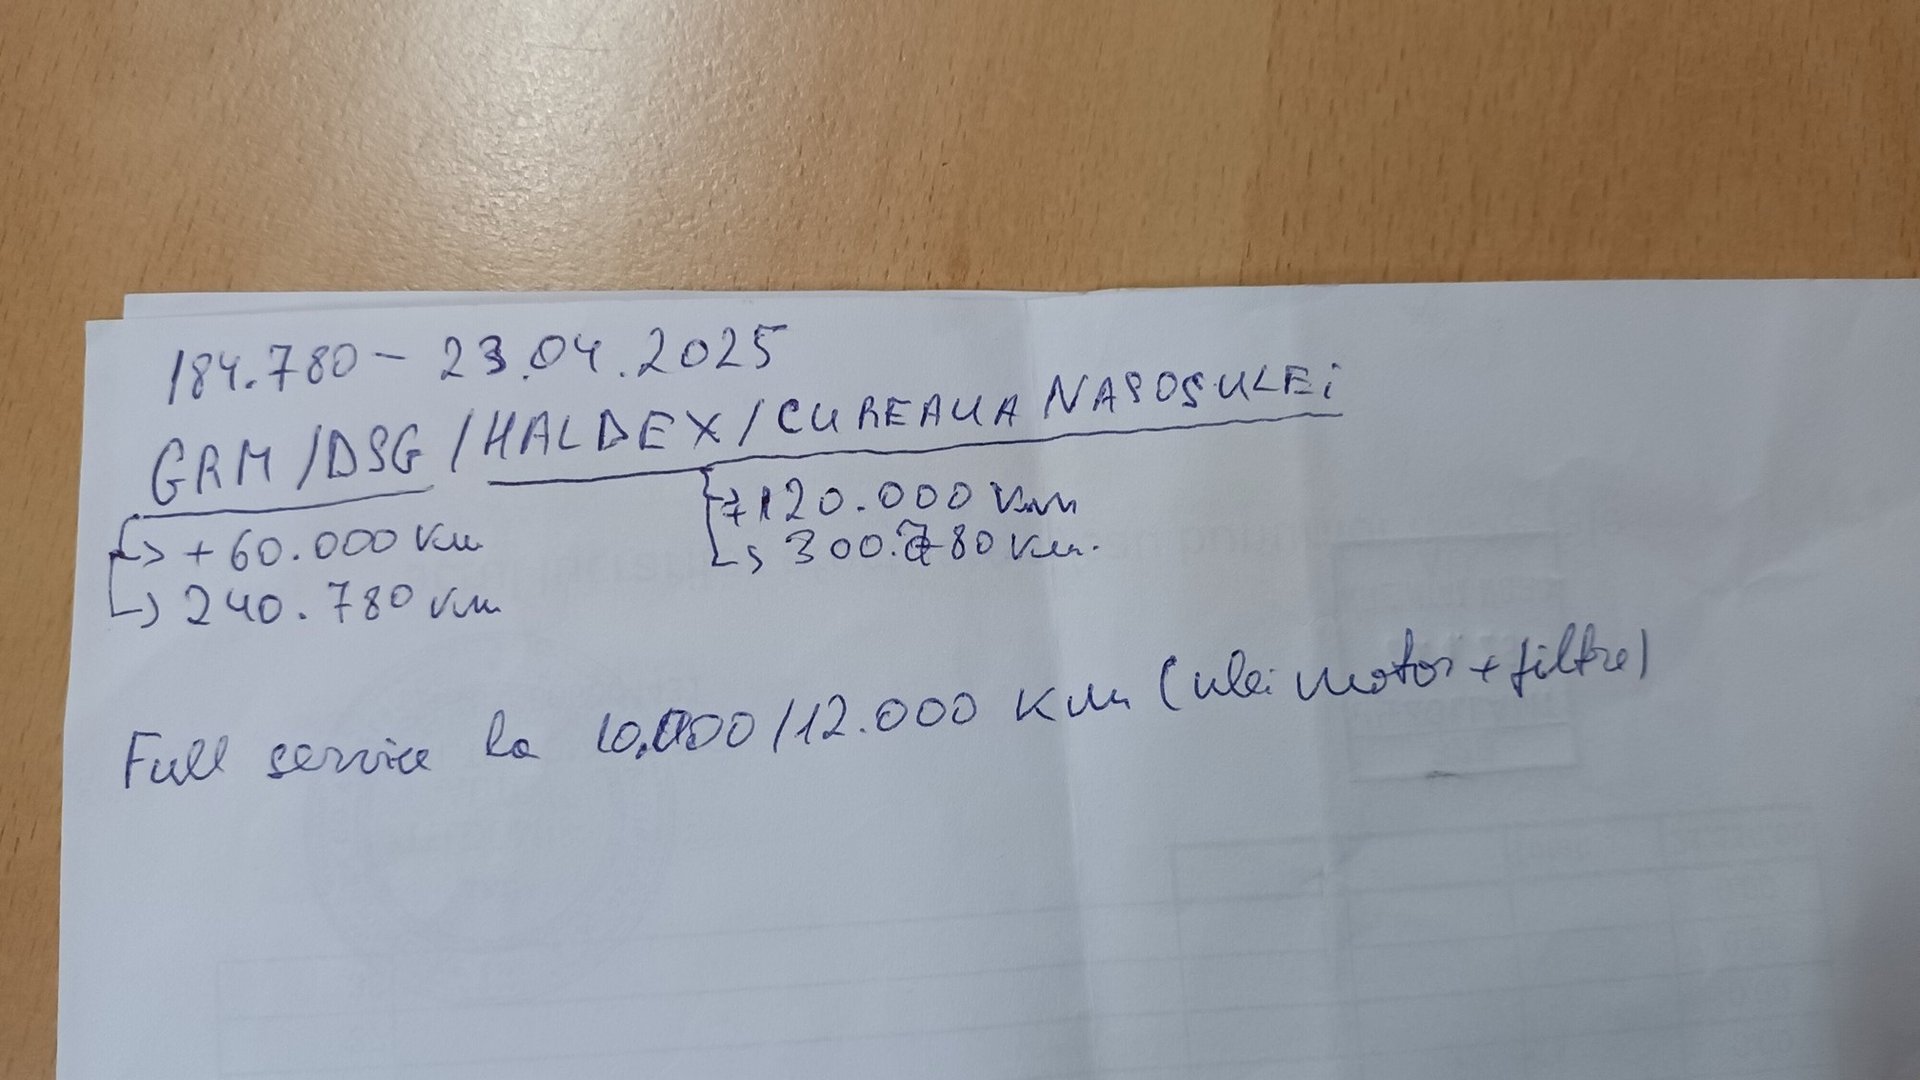 184.780 - 23.04.2025
GRM/DSG/HALDEX/CUREAUA NASOSULEI
→ + 60.000 Km
→ 240.780 Km
→ 120.000 Km
→ 300.780 Km.
Full service la 10.000/12.000 Km (ulei motor + filtre)